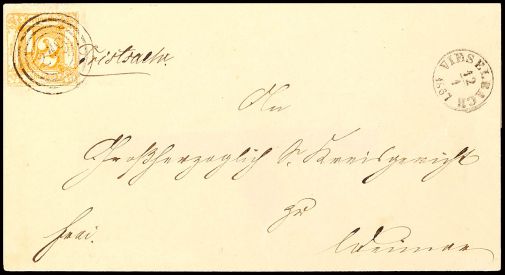 2
Fristsache.
VIESELBACH
12
1
1867
An
Großherzoglich S. Kreisgericht
zu
frei.
Weimar